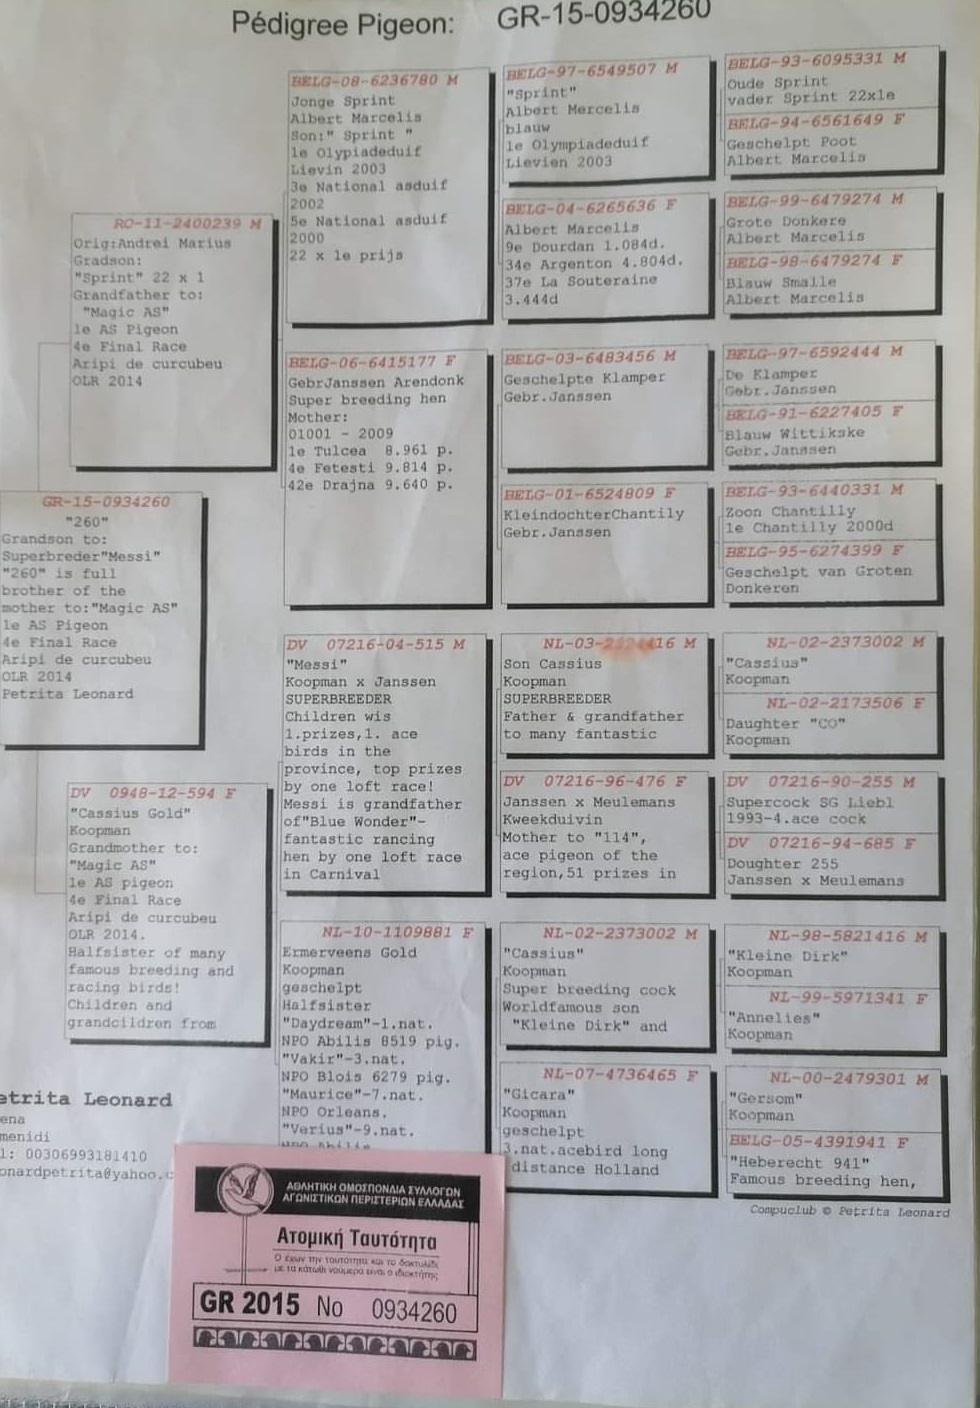 Pédigree Pigeon: GR-15-0934260
GR-15-0934260
"260"
Grandson to:
Superbreder"Messi"
"260" is full
brother of the
mother to:"Magic AS"
1e AS Pigeon
4e Final Race
Aripi de curcubeu
OLR 2014
Petrita Leonard
RO-11-2400239 M
Orig:Andrei Marius
Gradson:
"Sprint" 22 x 1
Grandfather to:
"Magic AS"
1e AS Pigeon
4e Final Race
Aripi de curcubeu
OLR 2014
DV 0948-12-594 F
"Cassius Gold"
Koopman
Grandmother to:
"Magic AS"
1e AS pigeon
4e Final Race
Aripi de curcubeu
OLR 2014.
Halfsister of many
famous breeding and
racing birds!
Children and
grandcildren from
BELG-08-6236780 M
Jonge Sprint
Albert Marcelis
Son:" Sprint "
1e Olypiadeduif
Lievin 2003
3e National asduif
2002
5e National asduif
2000
22 x 1e prijs
BELG-06-6415177 F
GebrJanssen Arendonk
Super breeding hen
Mother:
01001 - 2009
1e Tulcea 8.961 p.
4e Fetesti 9.814 p.
42e Drajna 9.640 p.
DV 07216-04-515 M
"Messi"
Koopman x Janssen
SUPERBREEDER
Children wis
1.prizes,1. ace
birds in the
province, top prizes
by one loft race!
Messi is grandfather
of"Blue Wonder"-
fantastic rancing
hen by one loft race
in Carnival
NL-10-1109881 F
Ermerveens Gold
Koopman
geschelpt
Halfsister
"Daydream"-1.nat.
NPO Abilis 8519 pig.
"Vakir"-3.nat.
NPO Blois 6279 pig.
"Maurice"-7.nat.
NPO Orleans.
"Verius"-9.nat.
NPO Abilis
BELG-97-6549507 M
"Sprint"
Albert Mercelis
blauw
1e Olympiadeduif
Lievien 2003
BELG-04-6265636 F
Albert Marcelis
9e Dourdan 1.084d.
34e Argenton 4.804d.
37e La Souteraine
3.444d
BELG-03-6483456 M
Geschelpte Klamper
Gebr.Janssen
BELG-01-6524809 F
KleindochterChantily
Gebr.Janssen
NL-03-16 M
Son Cassius
Koopman
SUPERBREEDER
Father & grandfather
to many fantastic
DV 07216-96-476 F
Janssen x Meulemans
Kweekduivin
Mother to "114",
ace pigeon of the
region,51 prizes in
NL-02-2373002 M
"Cassius"
Koopman
Super breeding cock
Worldfamous son
"Kleine Dirk" and
NL-07-4736465 F
"Gicara"
Koopman
geschelpt
3.nat.acebird long
distance Holland
BELG-93-6095331 M
Oude Sprint
vader Sprint 22x1e
BELG-94-6561649 F
Geschelpt Poot
Albert Marcelis
BELG-99-6479274 M
Grote Donkere
Albert Marcelis
BELG-98-6479274 F
Blauw Smalle
Albert Marcelis
BELG-97-6592444 M
De Klamper
Gebr.Janssen
BELG-91-6227405 F
Blauw Wittikske
Gebr.Janssen
BELG-93-6440331 M
Zoon Chantilly
1e Chantilly 2000d
BELG-95-6274399 F
Geschelpt van Groten
Donkeren
NL-02-2373002 M
"Cassius"
Koopman
NL-02-2173506 F
Daughter "CO"
Koopman
DV 07216-90-255 M
Supercock SG Liebl
1993-4.ace cock
DV 07216-94-685 F
Doughter 255
Janssen x Meulemans
NL-98-5821416 M
"Kleine Dirk"
Koopman
NL-99-5971341 F
"Annelies"
Koopman
NL-00-2479301 M
"Gersom"
Koopman
BELG-05-4391941 F
"Heberecht 941"
Famous breeding hen,
Compuclub © Petrita Leonard
etrita Leonard
ena
menidi
l: 00306993181410
onardpetrita@yahoo.c
ΑΘΛΗΤΙΚΗ ΟΜΟΣΠΟΝΔΙΑ ΣΥΛΛΟΓΩΝ
ΑΓΩΝΙΣΤΙΚΩΝ ΠΕΡΙΣΤΕΡΙΩΝ ΕΛΛΑΔΑΣ
Ατομική Ταυτότητα
Ο έχων την ταυτότητα και το δακτυλίδι
με τα κάτωθι νούμερα είναι ο ιδιοκτήτης
GR 2015 No 0934260